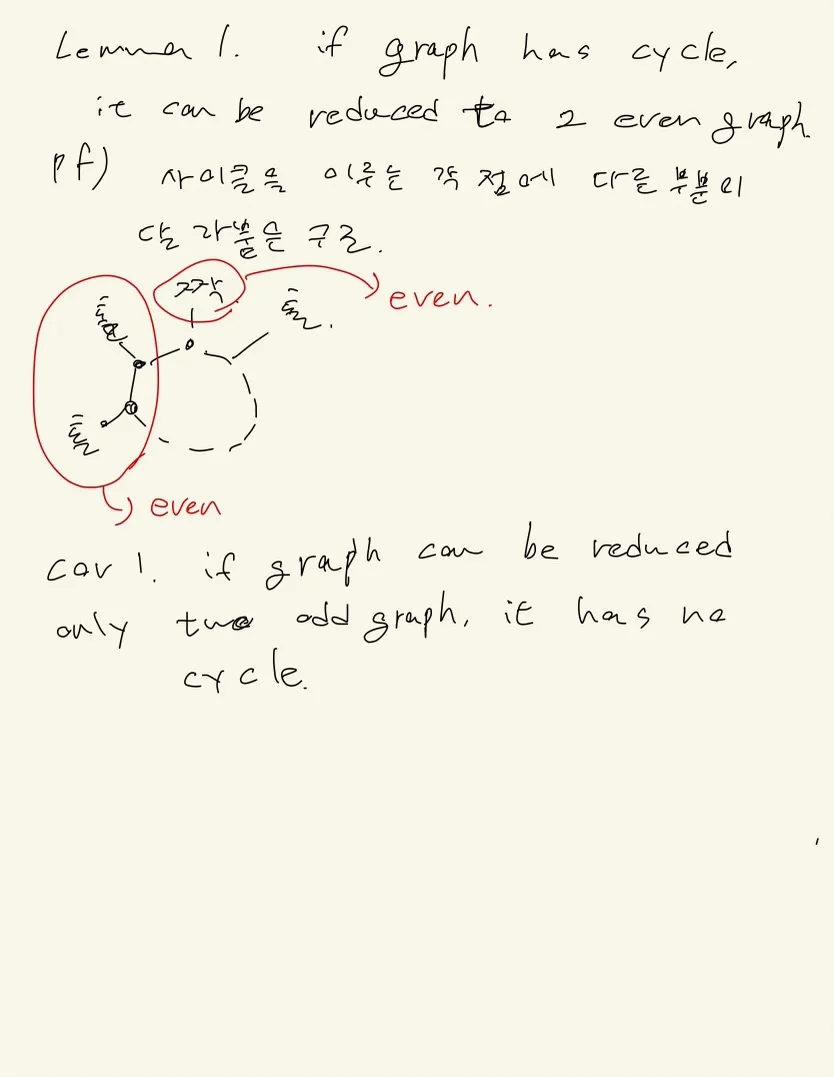 Lemma 1. if graph has cycle,
it can be reduced to 2 even graph.
pf) 사이클을 이루는 각 점에 다른 부분이
달라붙은 구조.
짝
홀
홀.
even.
홀
even
cor 1. if graph can be reduced
only two odd graph, it has no
cycle.